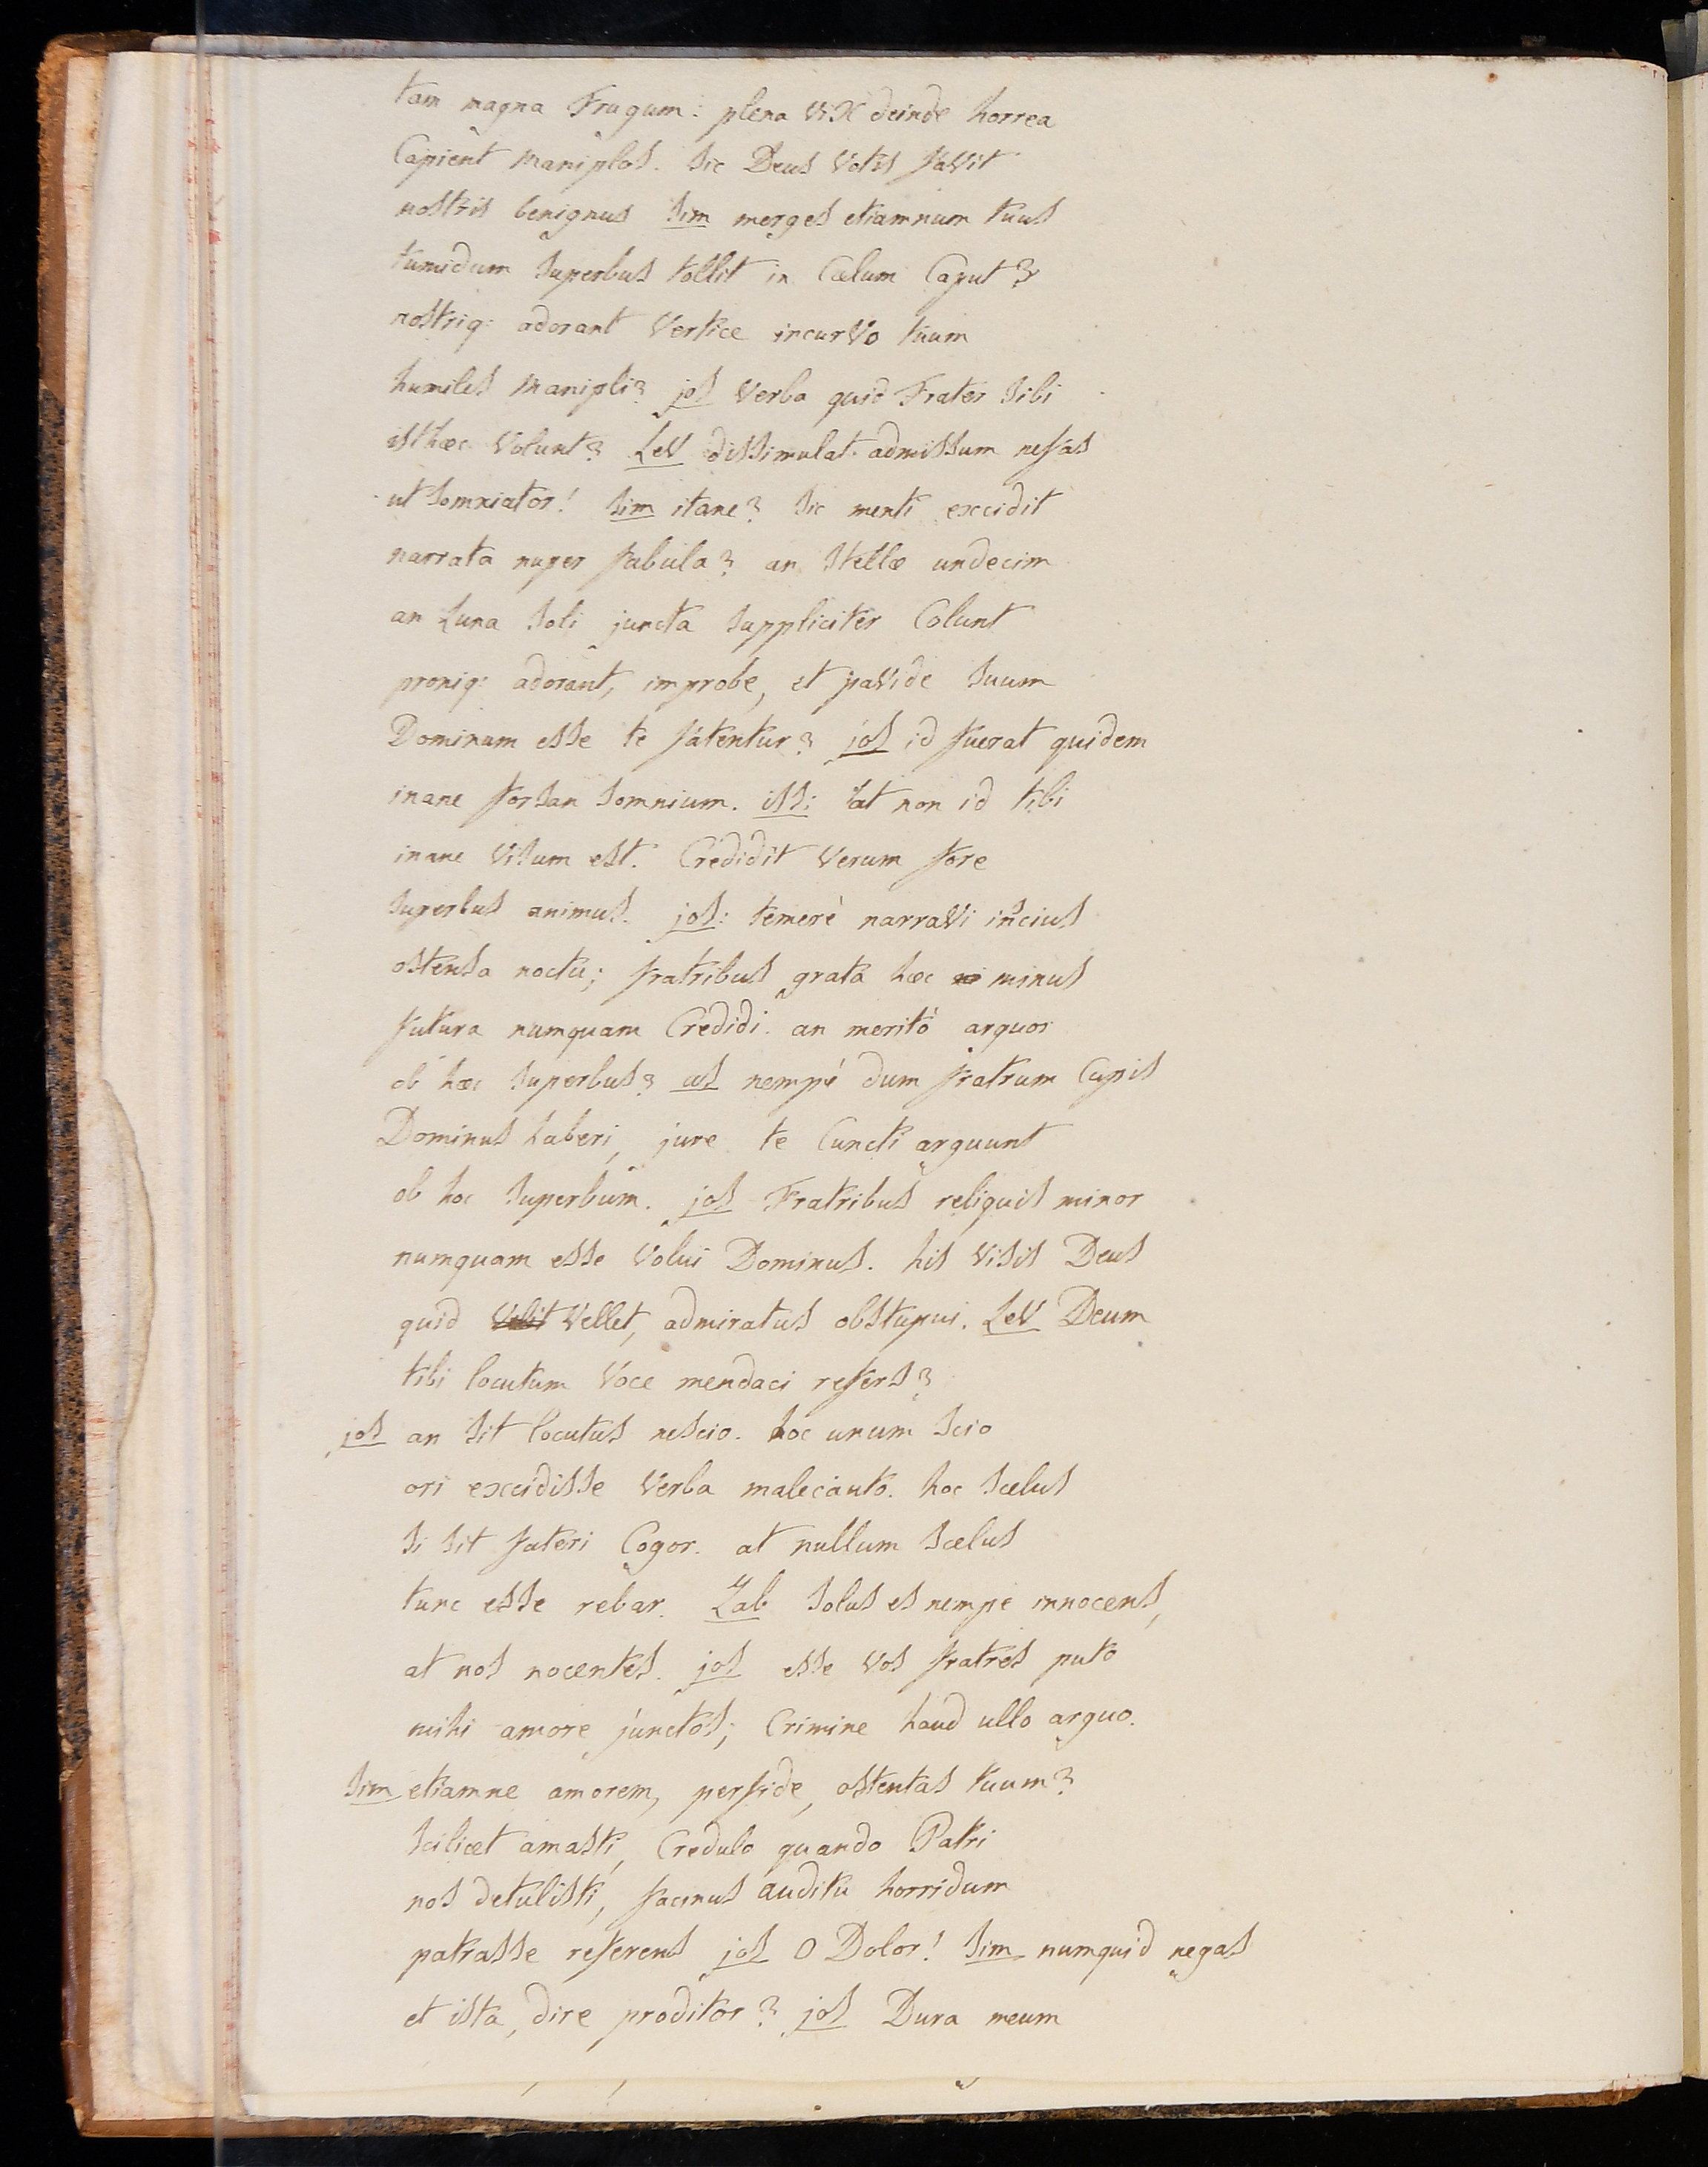 tam magna Frugum: plena viX deinde horrea
Capient maniplos. sic Deus votis favit
nostris benignus sim merges etiamnum tuus
tumidum superbus tollit in Cælum Caput?
nostriq: adorant vertice incurvo tuum
humiles manipli? jos verba quid Frater sibi
isthæc volunt? Lev dissimulat admissum nefas
ut somniator! sim itane? sic menti excidit
narrata nuper fabula? an stellæ undecim
an Luna soli juncta suppliciter Colunt
proniq: adorant, improbe, et pavide suum
Dominum esse te fatentur? jos id fuerat quidem
inane forsan somnium. iss: at non id tibi
inane visum est. Credidit verum fore
superbus animus. jos: temerè narravi inscius
ostensa noctu; fratribus grata hæc minus
futura numquam Credidi. an meritò arguor
ob hæc superbus? as nempè dum fratrum Cupis
Dominus haberi, jure te Cuncti arguunt
ob hoc superbum. jos Fratribus reliquis minor
numquam esse volui Dominus. his visis Deus
quid velit vellet, admiratus obstupui. Lev Deum
tibi locutum voce mendaci refers?
jos an sit locutus nescio. hoc unum scio
ori excidisse verba malecauto. hoc scelus
si sit fateri Cogor. at nullum scelus
tunc esse rebar. Zab solus es nempe innocens,
at nos nocentes. jos esse vos fratres puto
mihi amore junctos; Crimine haud ullo arguo.
sim etiamne amorem, perfide, ostentas tuum?
scilicet amasti, Credulo quando Patri
nos detulisti, facinus auditu horridum
patrasse referens jos O Dolor! sim numquid negas
et ista, dire proditor? jos Dura meum